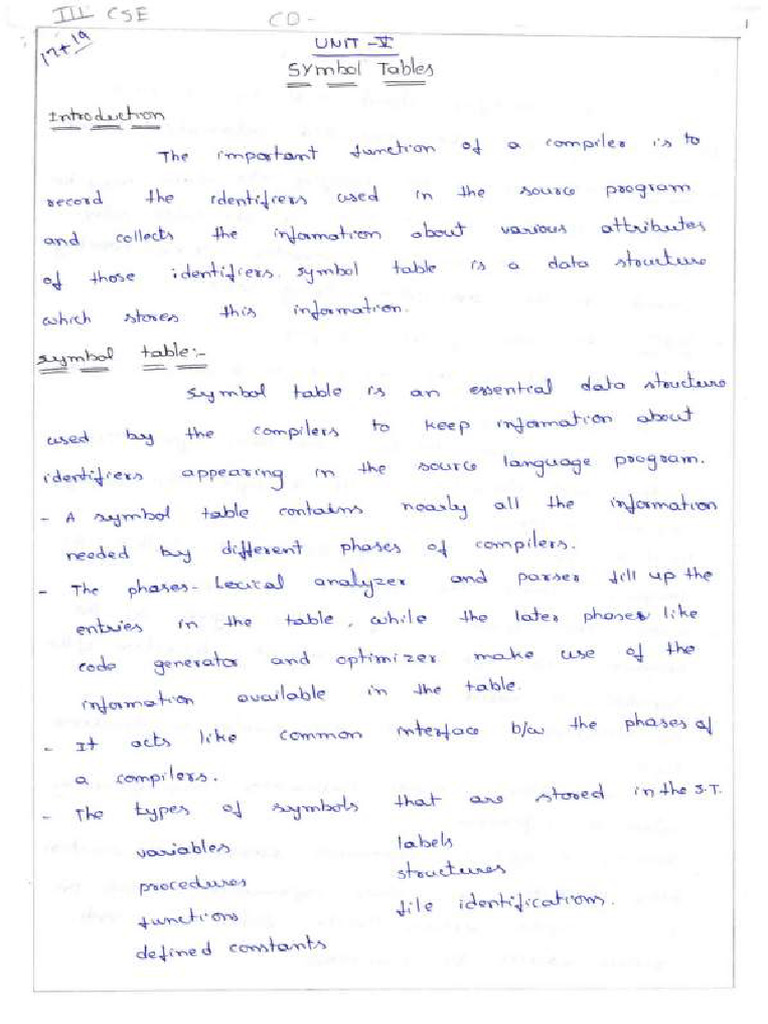 III CSE CD - 1
17+19
UNIT - V
Symbol Tables
Introduction
The important function of a compiler is to
record the identifiers used in the source program
and collects the information about various attributes
of those identifiers. symbol table is a data structure
which stores this information.
symbol table:-
symbol table is an essential data structure
used by the compilers to keep information about
identifiers appearing in the source language program.
- A symbol table contains nearly all the information
needed by different phases of compilers.
- The phases - Lexical analyzer and parser fill up the
entries in the table, while the later phases like
code generator and optimizer make use of the
information available in the table.
- It acts like common interface b/w the phases of
a compilers.
- The types of symbols that are stored in the S.T.
variables labels
procedures structures
functions file identifications.
defined constants